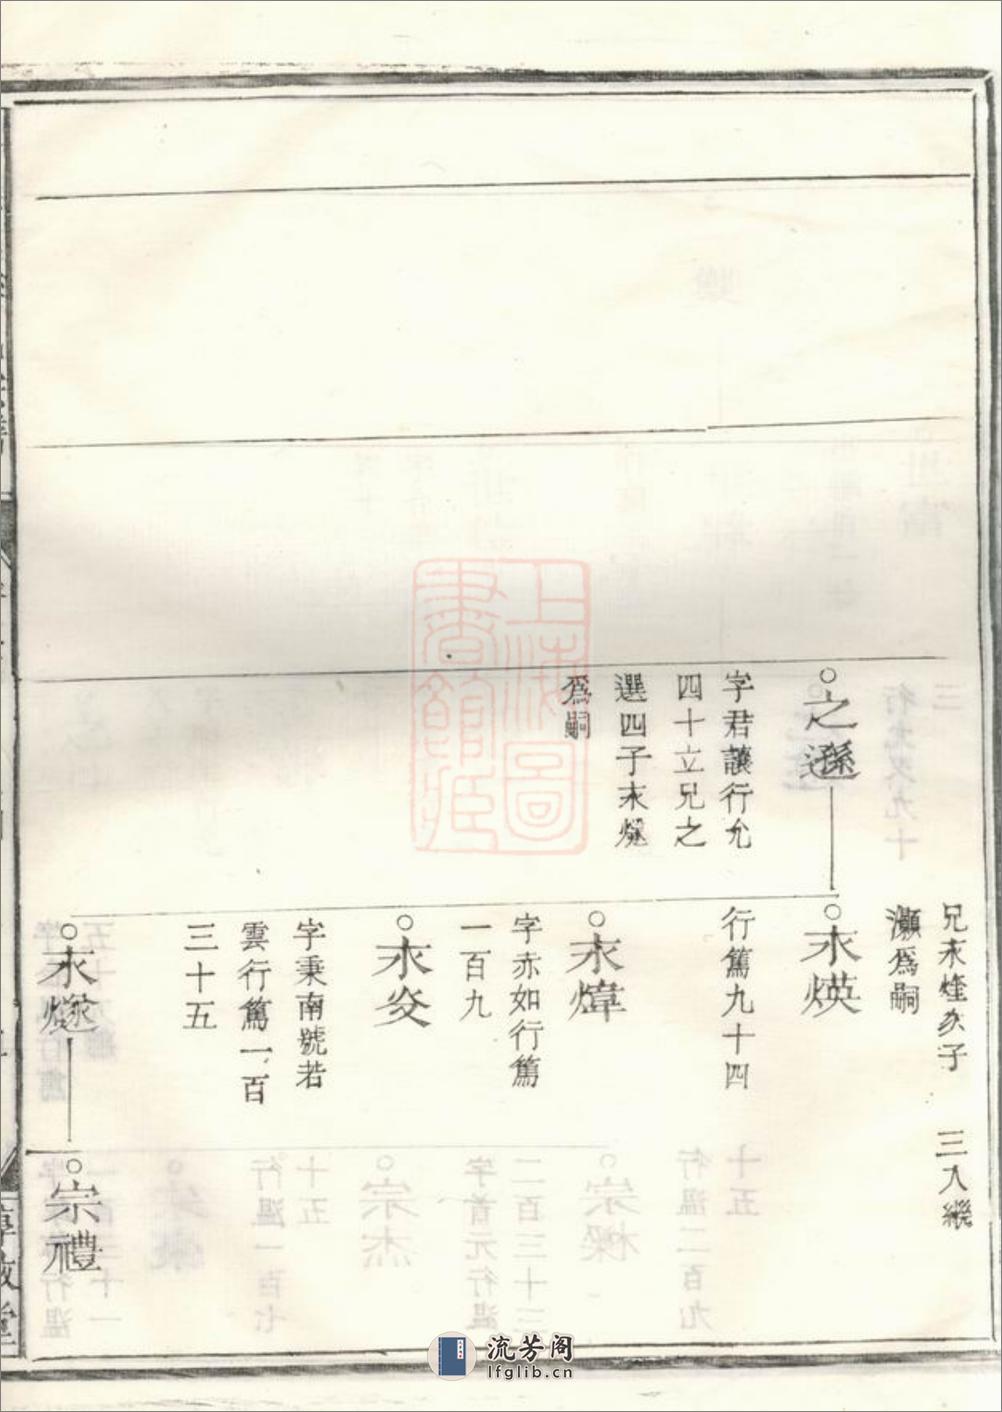 兄末煃次子
瀬爲嗣
三入繼
之遜
字君讓行允
四十立兄之
選四子末燧
爲嗣
末煐
行篤九十四
末煒
字赤如行篤
一百九
末炎
字秉南號若
雲行篤一百
三十五
末燧
宗禮
上海圖
書館藏
流芳阁
lfglib.cn